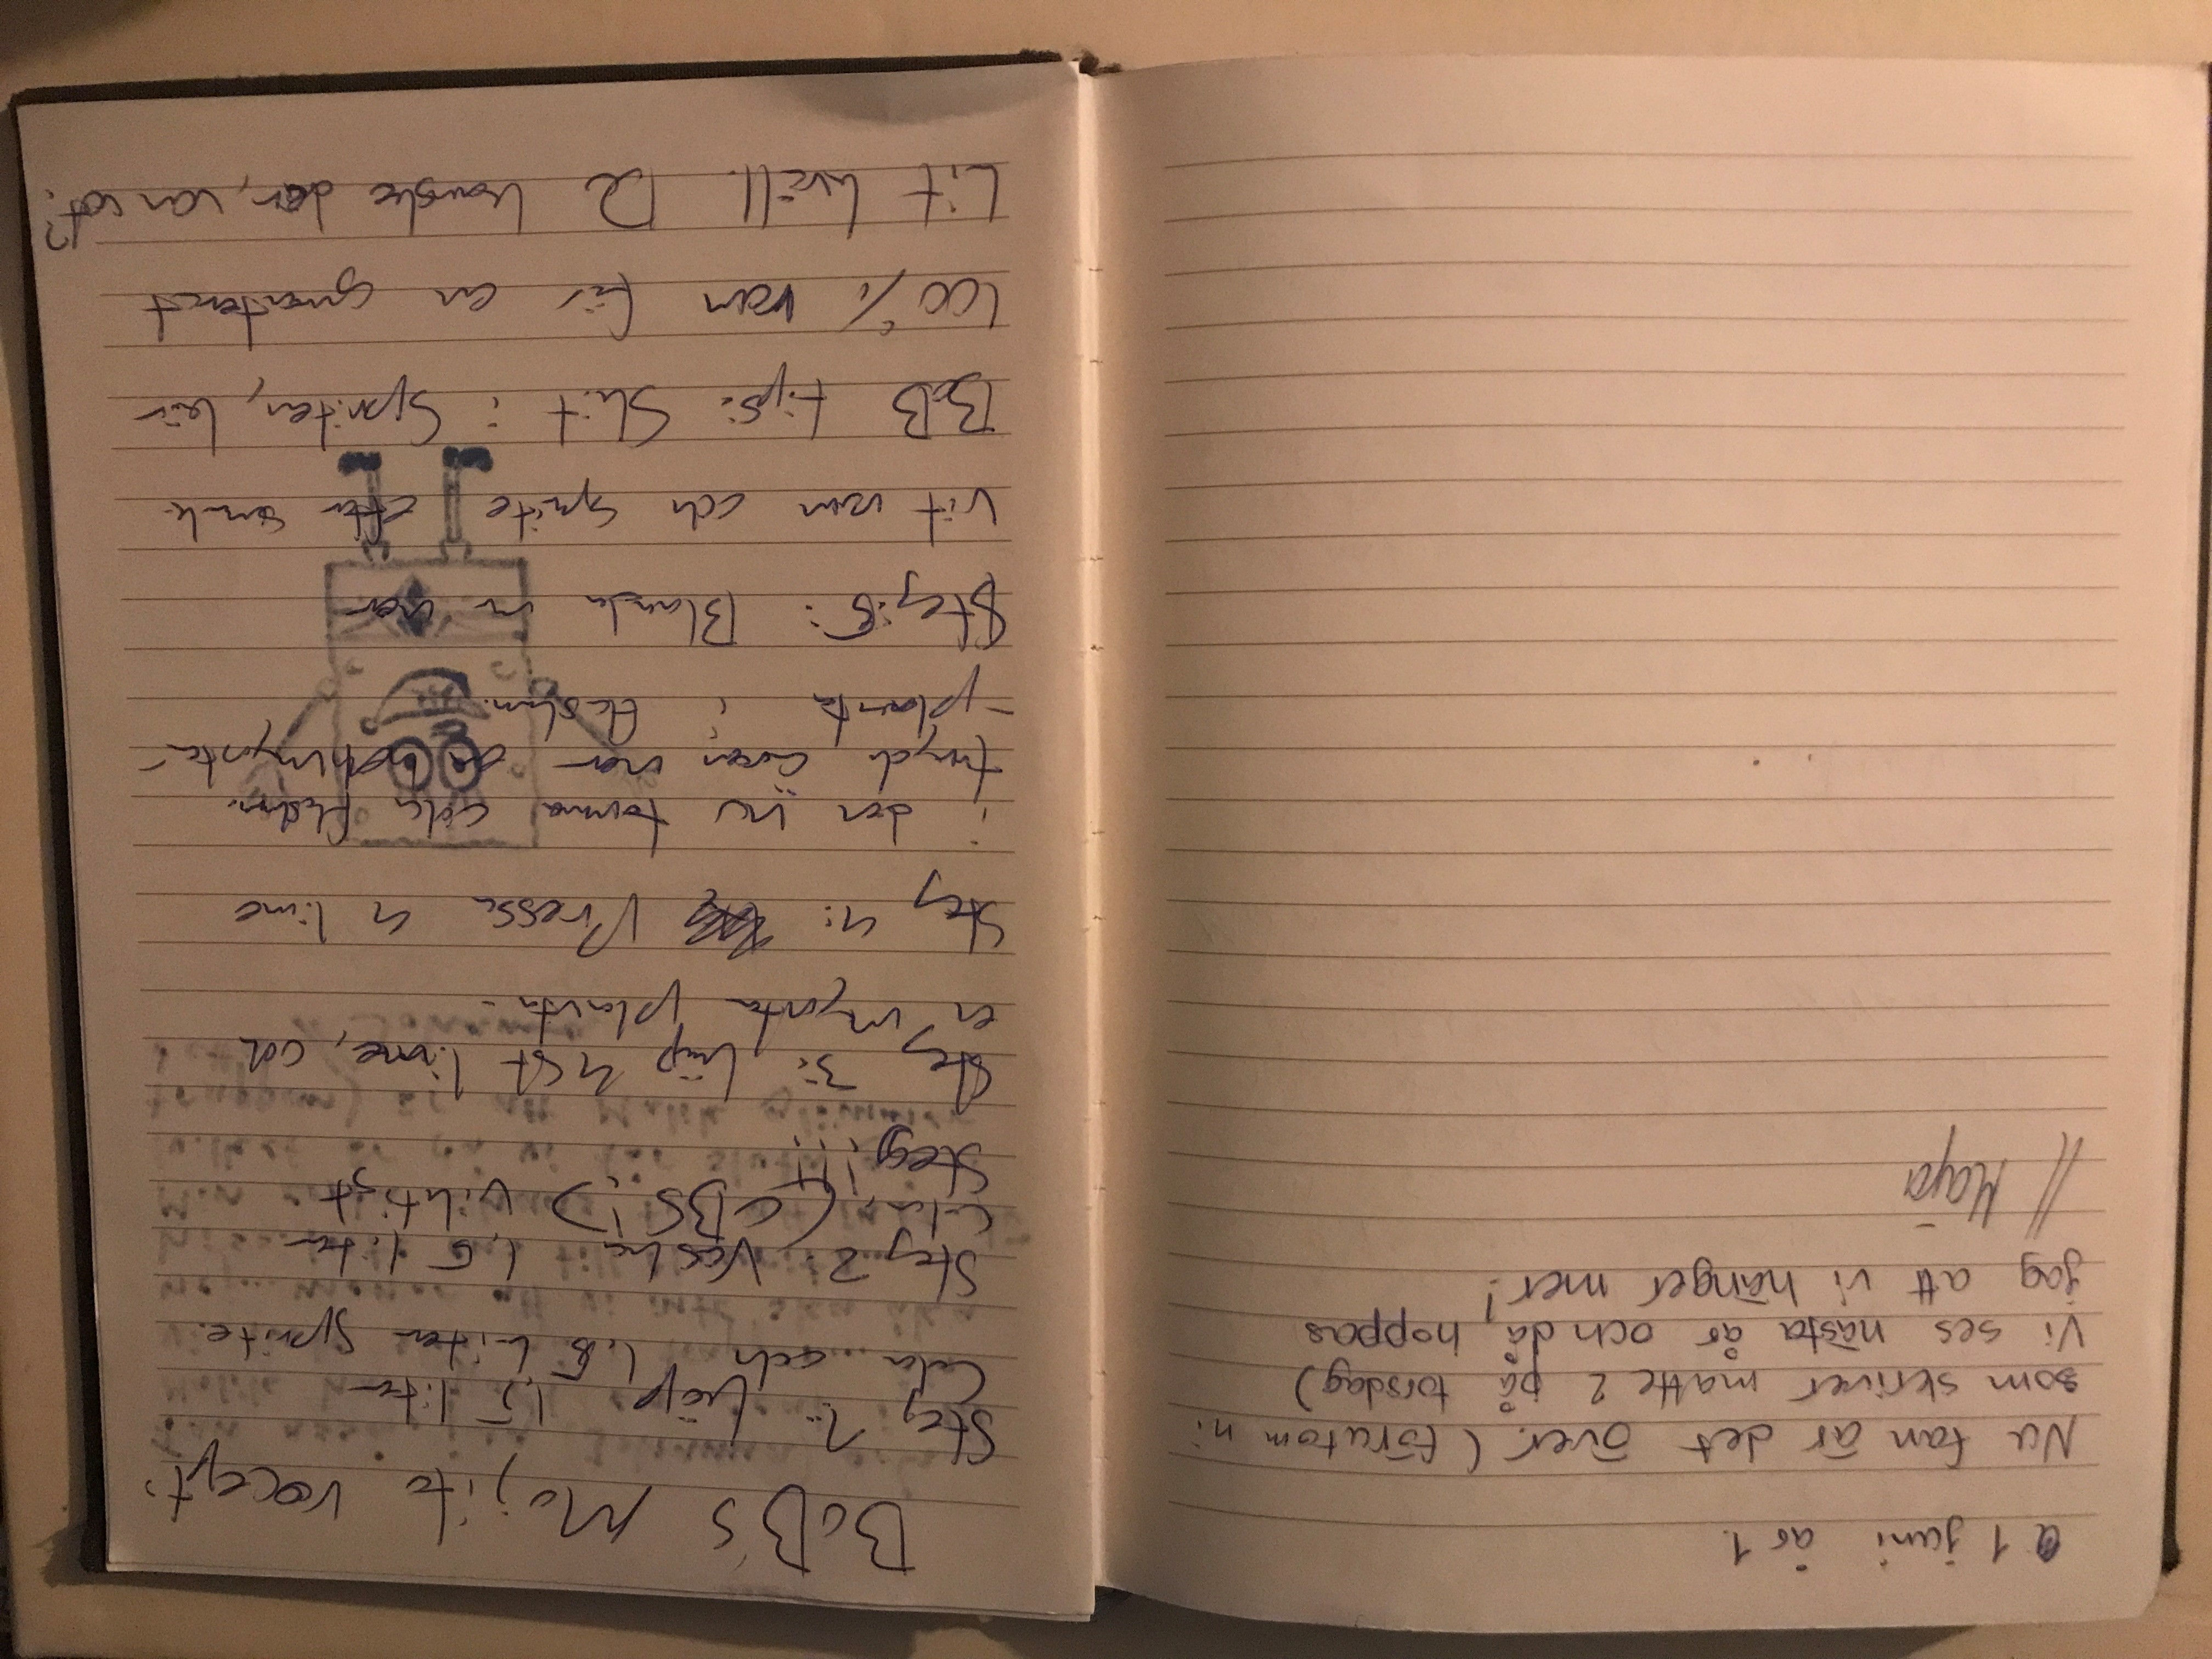 1 juni år 1.
Nu fan är det över. (förutom ni
som skriver matte 2 på torsdag)
Vi ses nästa år och då hoppas
jag att vi hänger mer!
// Maja
BoB's Mojito recept:
Steg 1: köp 1,5 liter
Cola och 1,5 Liter Sprite.
Steg 2: Vaska 1,5 liter
Cola, (OBS!) viktigt
Steg!!!
Steg 3: köp 4 st lime, och
en mynta planta.
Steg 4: Pressa 4 lime
i den nu tomma cola flaskan.
tryck även ner mynta-
-planta i flaskan.
Steg:5: Blanda
vit rom och sprite efter smak.
BoB tips: Skit i Spriten, kör
100% rom för en garanterat
Lit kväll. kanske dör, vet?